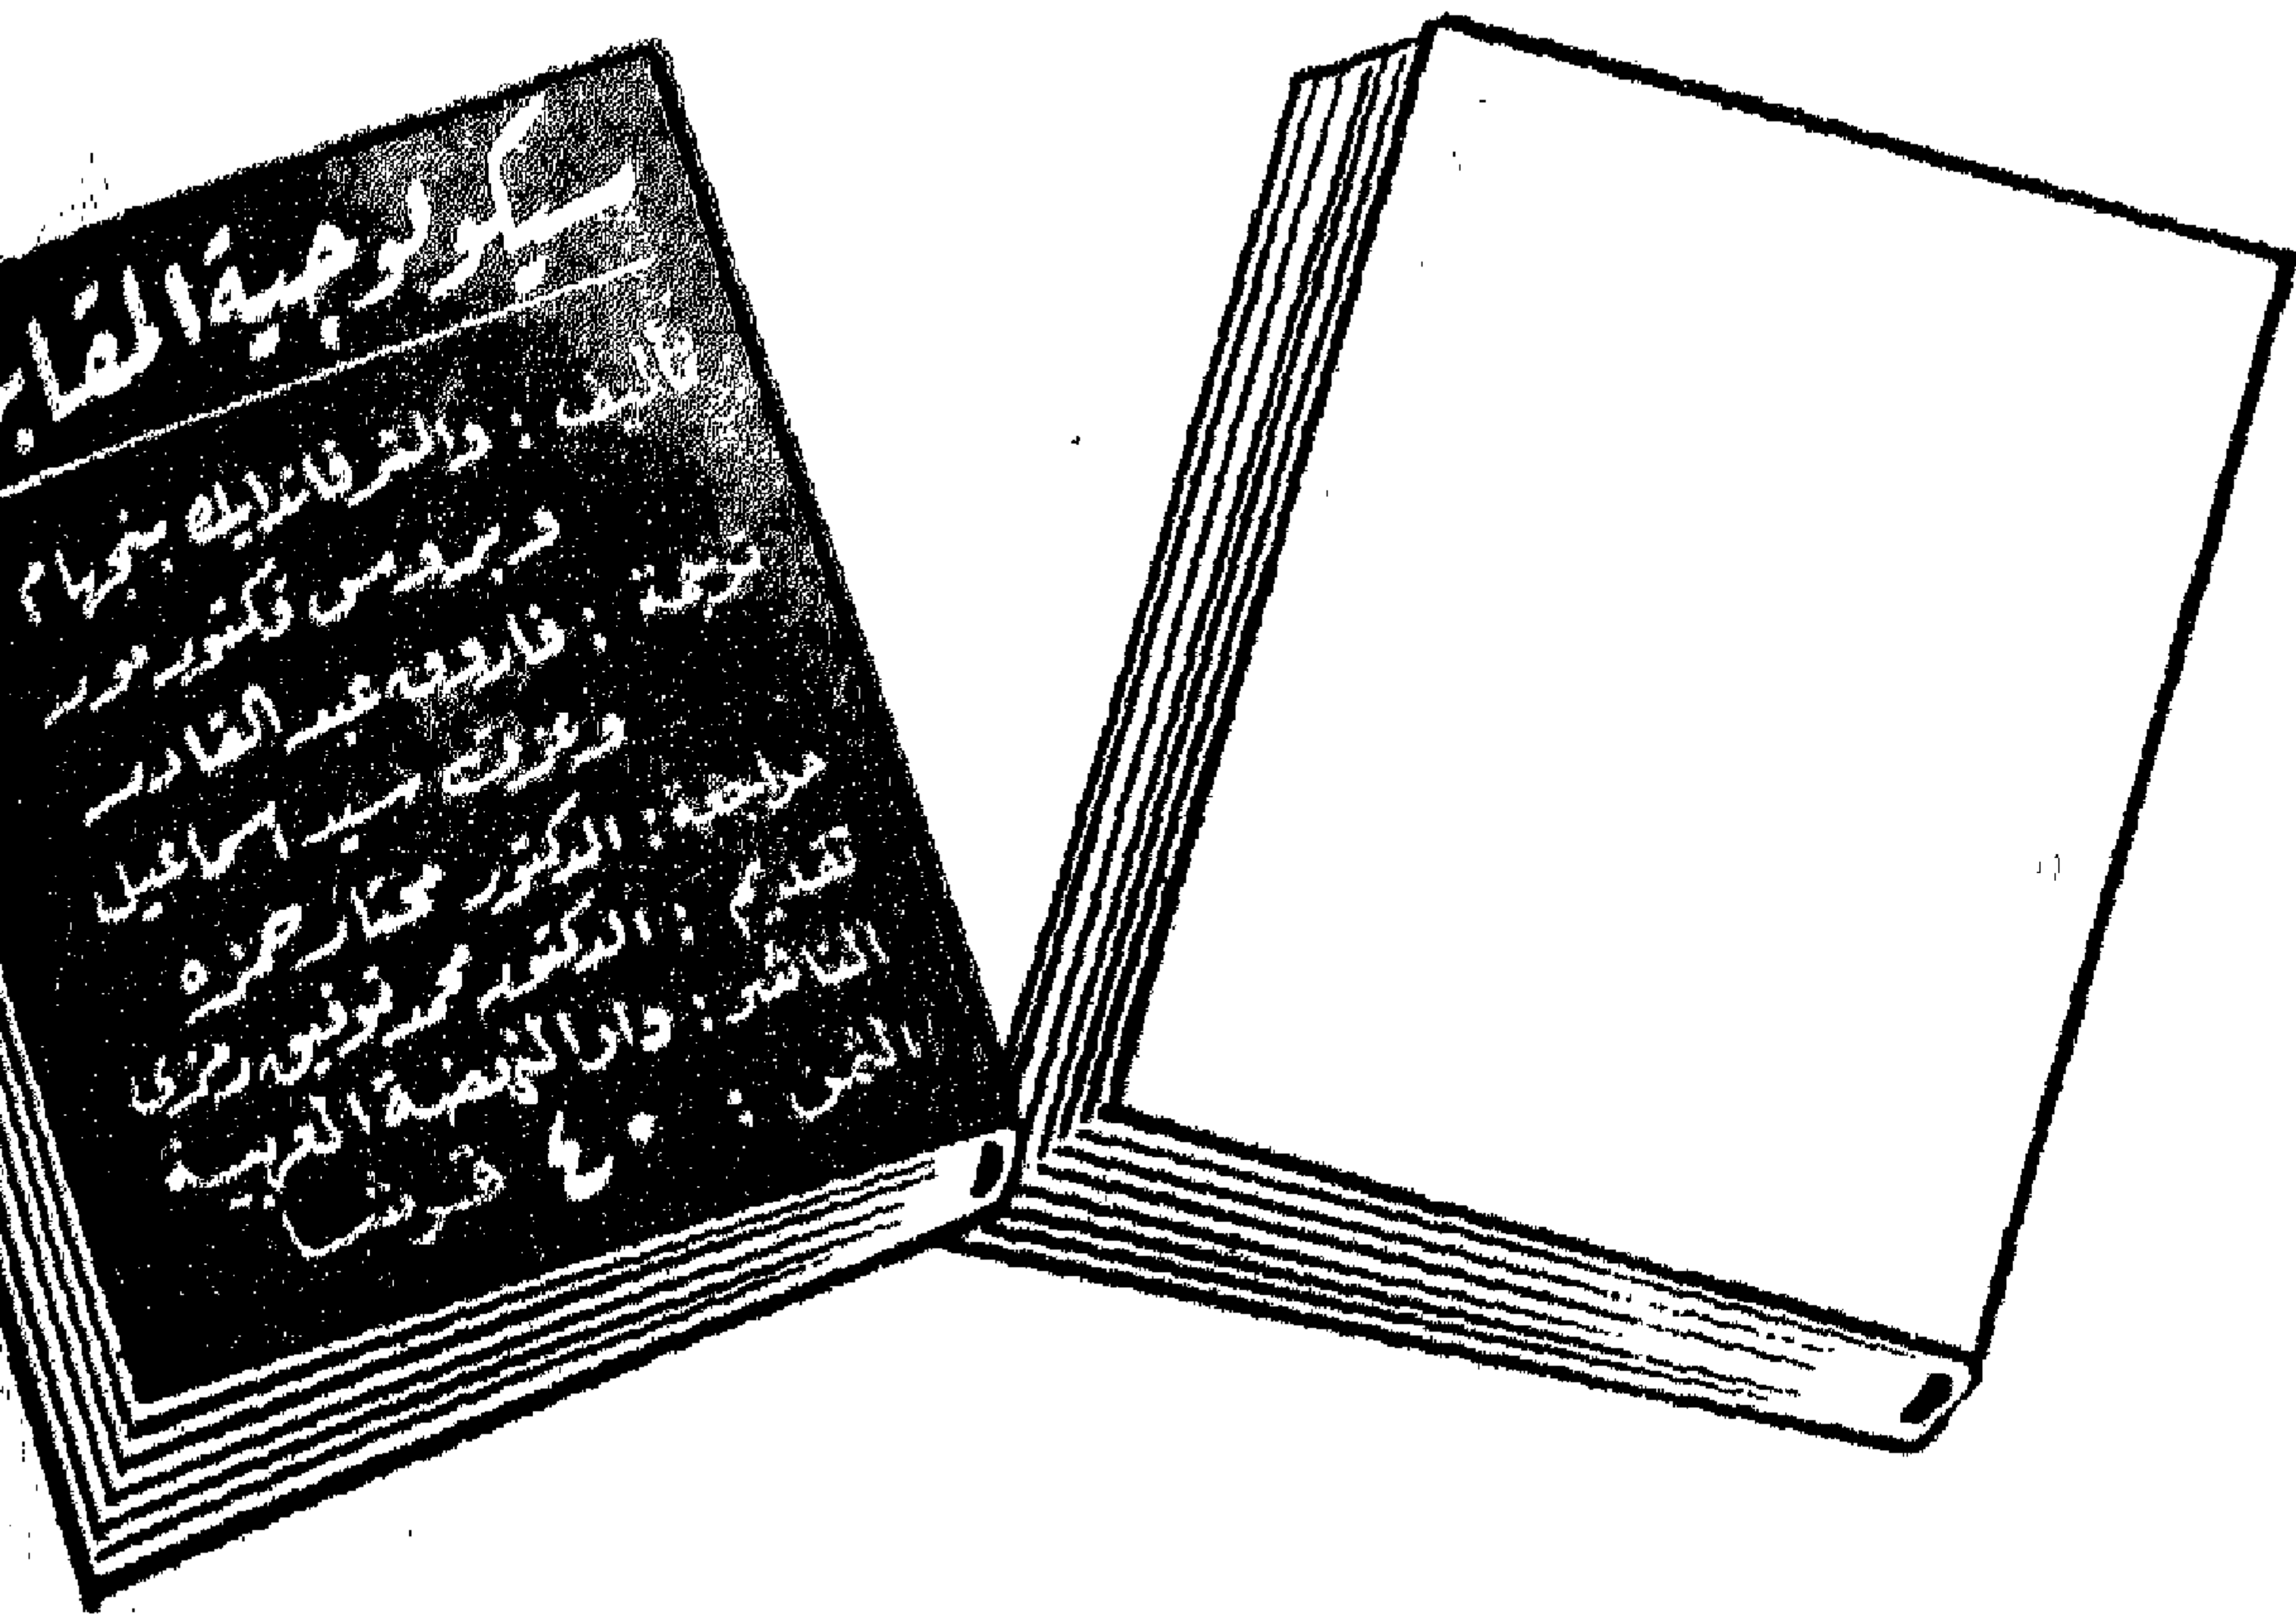 سيكولوجية القيا
تأليف : والتر فان دايك بنجهام
و بروس فكتور مور
ترجمة : فاروق عبد القادر
وعزت سيد إسماعيل
مراجعة : الدكتور مختار حمزه
تقديم : الدكتور محمد توفيق رمزى
الناشر : دار النهضة العربية
الثمن : ٤٠ قرشا